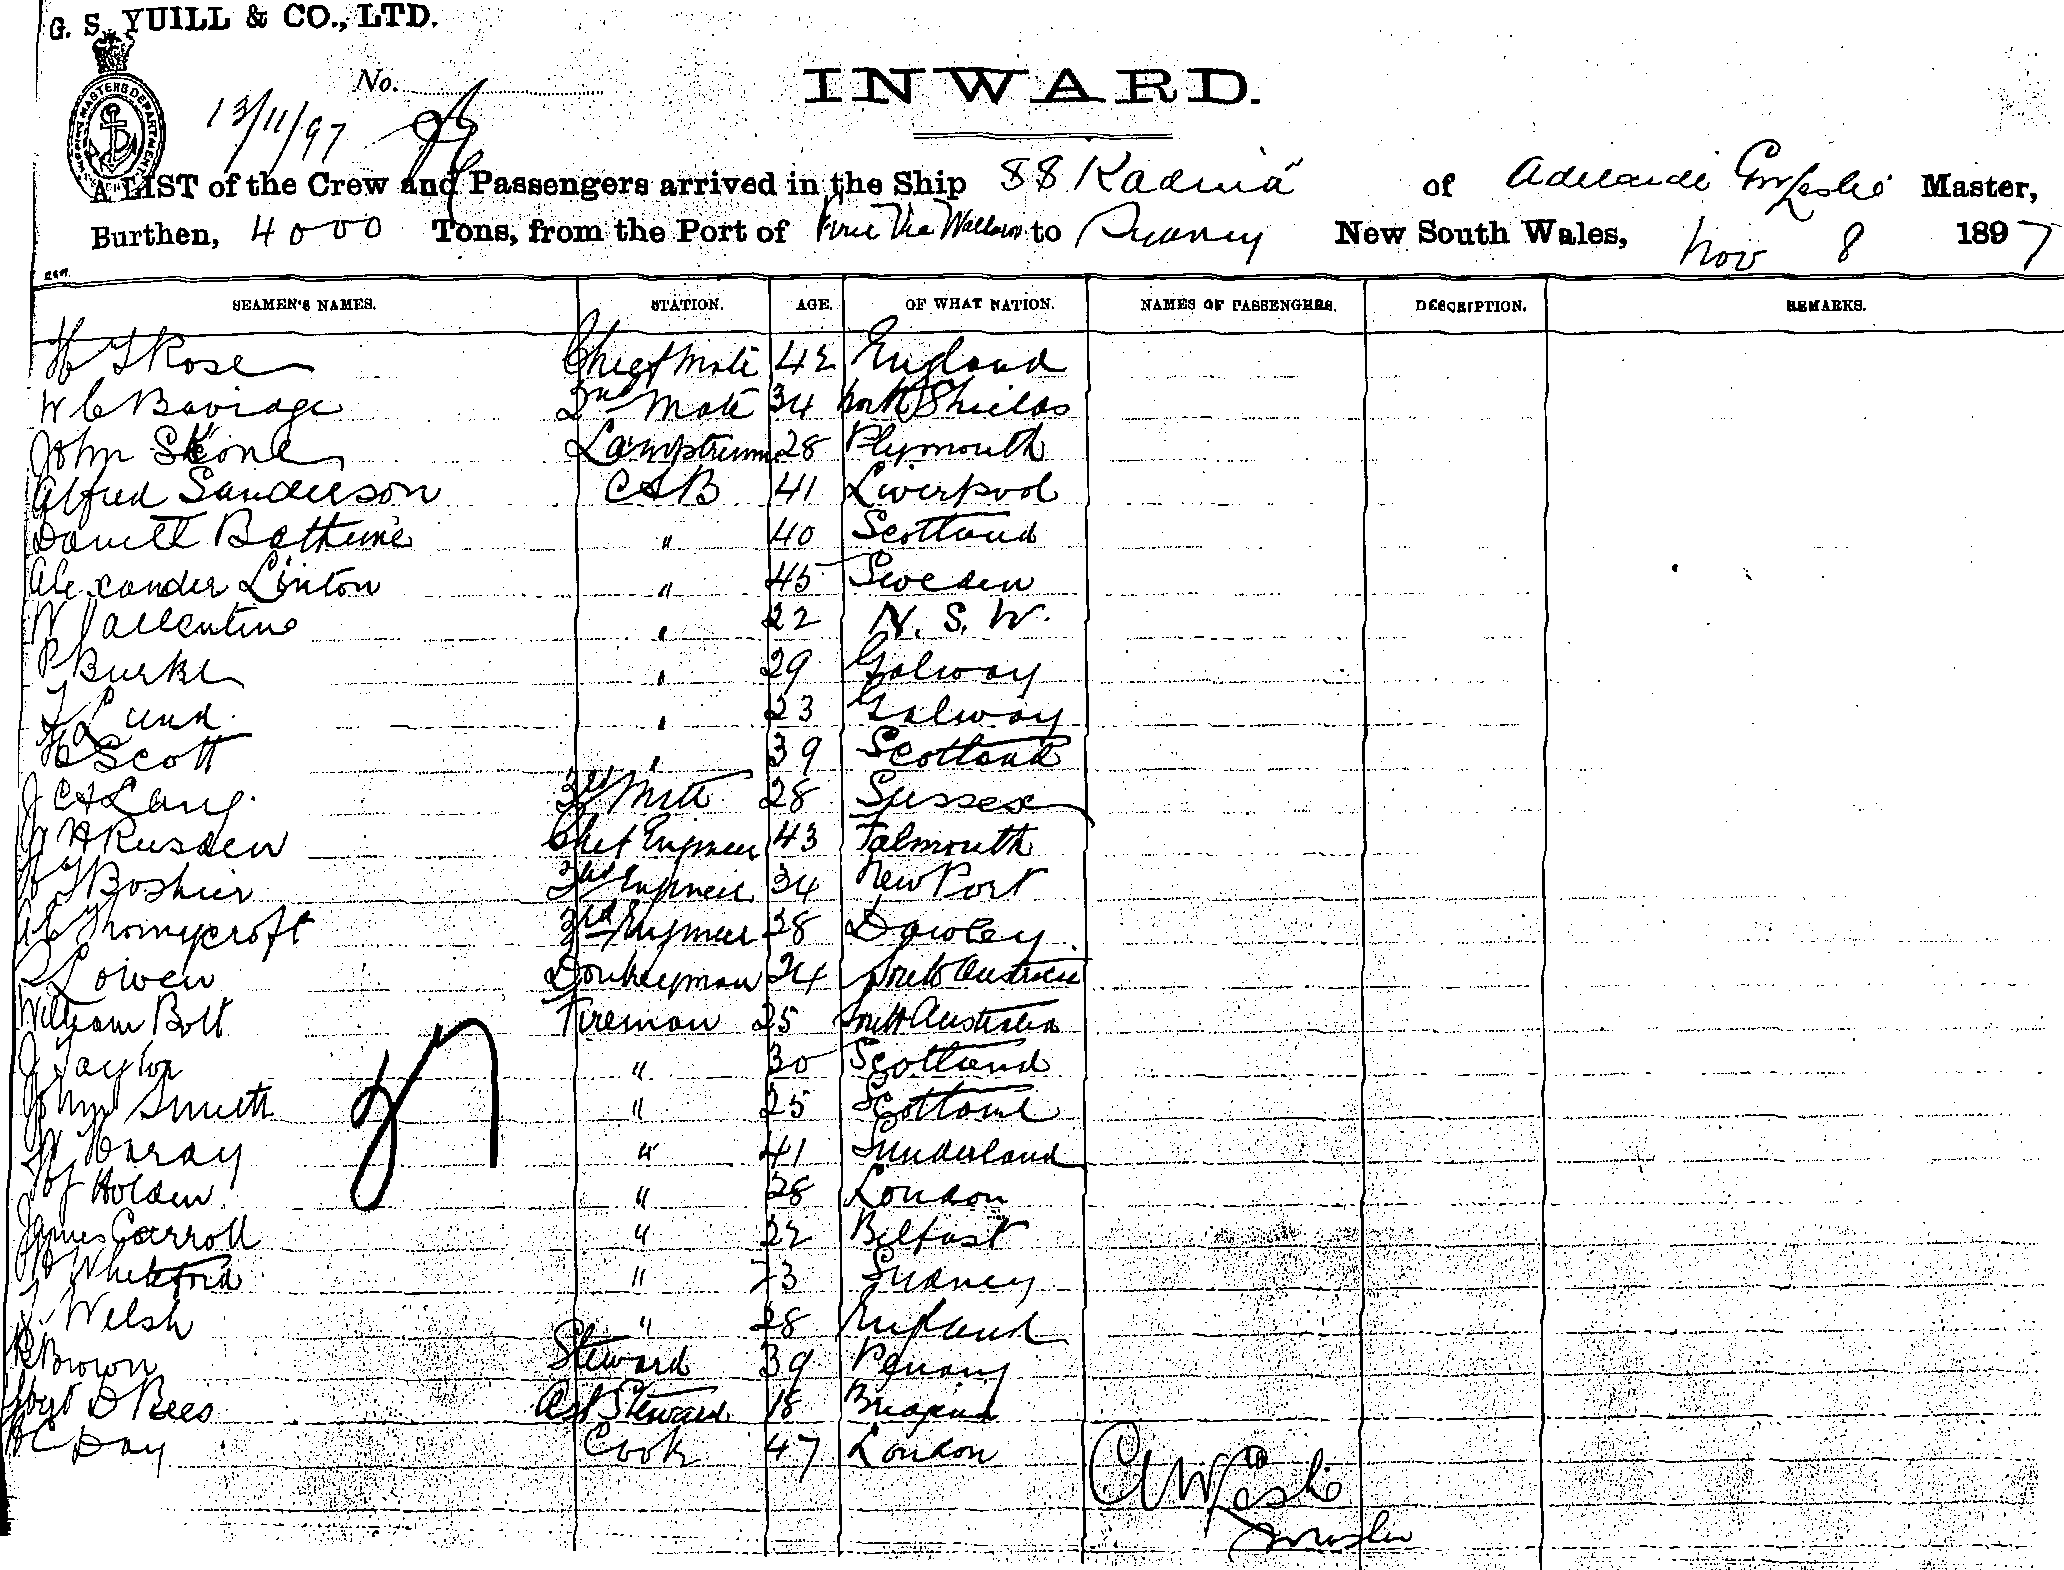 G. S. YUILL & CO., LTD.
No.
INWARD.
13/11/97
A LIST of the Crew and Passengers arrived in the Ship SS Kadina of Adelaide Master,
Burthen, 4000 Tons, from the Port of Via to Sydney New South Wales, Nov 8 1897
SEAMEN'S NAMES. STATION. AGE. OF WHAT NATION. NAMES OF PASSENGERS. DESCRIPTION. REMARKS.
Rose Chief Mate 42 England
W C Bavidge 2nd Mate 34 North Shields
John Skone 28 Plymouth
Alfred Sanderson AB 41 Liverpool
Bathune " 40 Scotland
Alexander Linton " 45 Sweden
W Vallentine " 22 N. S. W.
P Burke " 29 Galway
Lund " 23 Galway
Scott " 39 Scotland
J A Lang 3rd Mate 28 Sussex
H Rusden Chief Engineer 43 Falmouth
Boshier 2nd Engineer 34 New Port
Thornycroft 3rd Engineer 38 Dawley
Lowen Donkeyman 24 South Australia
William Bolt Fireman 25 South Australia
J Taylor " 30 Scotland
John Smith " 25 Scotland
" 41 Sunderland
Holden " 28 London
James Carroll " 22 Belfast
Whiteford " 23 Sydney
Welsh " 28 England
R Brown Steward 39 Penang
D Rees Ast Steward 18
Day Cook 47 London
Leslie
Master